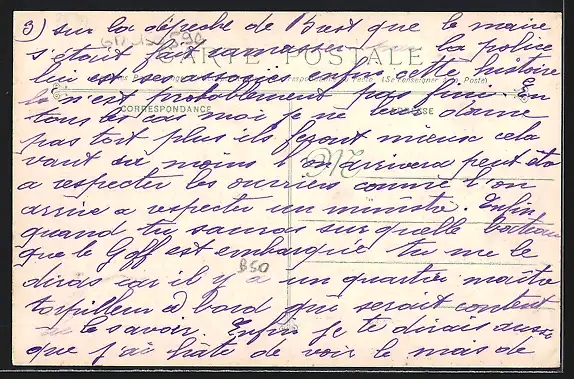 3) sur la dépeche de Brest que le maire
s'était fait ramasser par la police
CARTE POSTALE
lui est ses associés enfin cette histoire
la n'est probablement pas finie en
CORRESPONDANCE
tous les cas moi je ne leur donne
pas tort plus ils feront mieux cela
vaut au moins l'on arrivera peut être
a respecter les ouvriers comme l'on
arrive a respecter un ministre. Enfin
quand tu sauras sur quelle bateau
que le Goff est embarquée tu me le
diras car il y a un quartié maître
850
torpilleur a bord qui serait content
de le savoir. Enfin je te dirais aussi
que j'ai hâte de voir le mois de